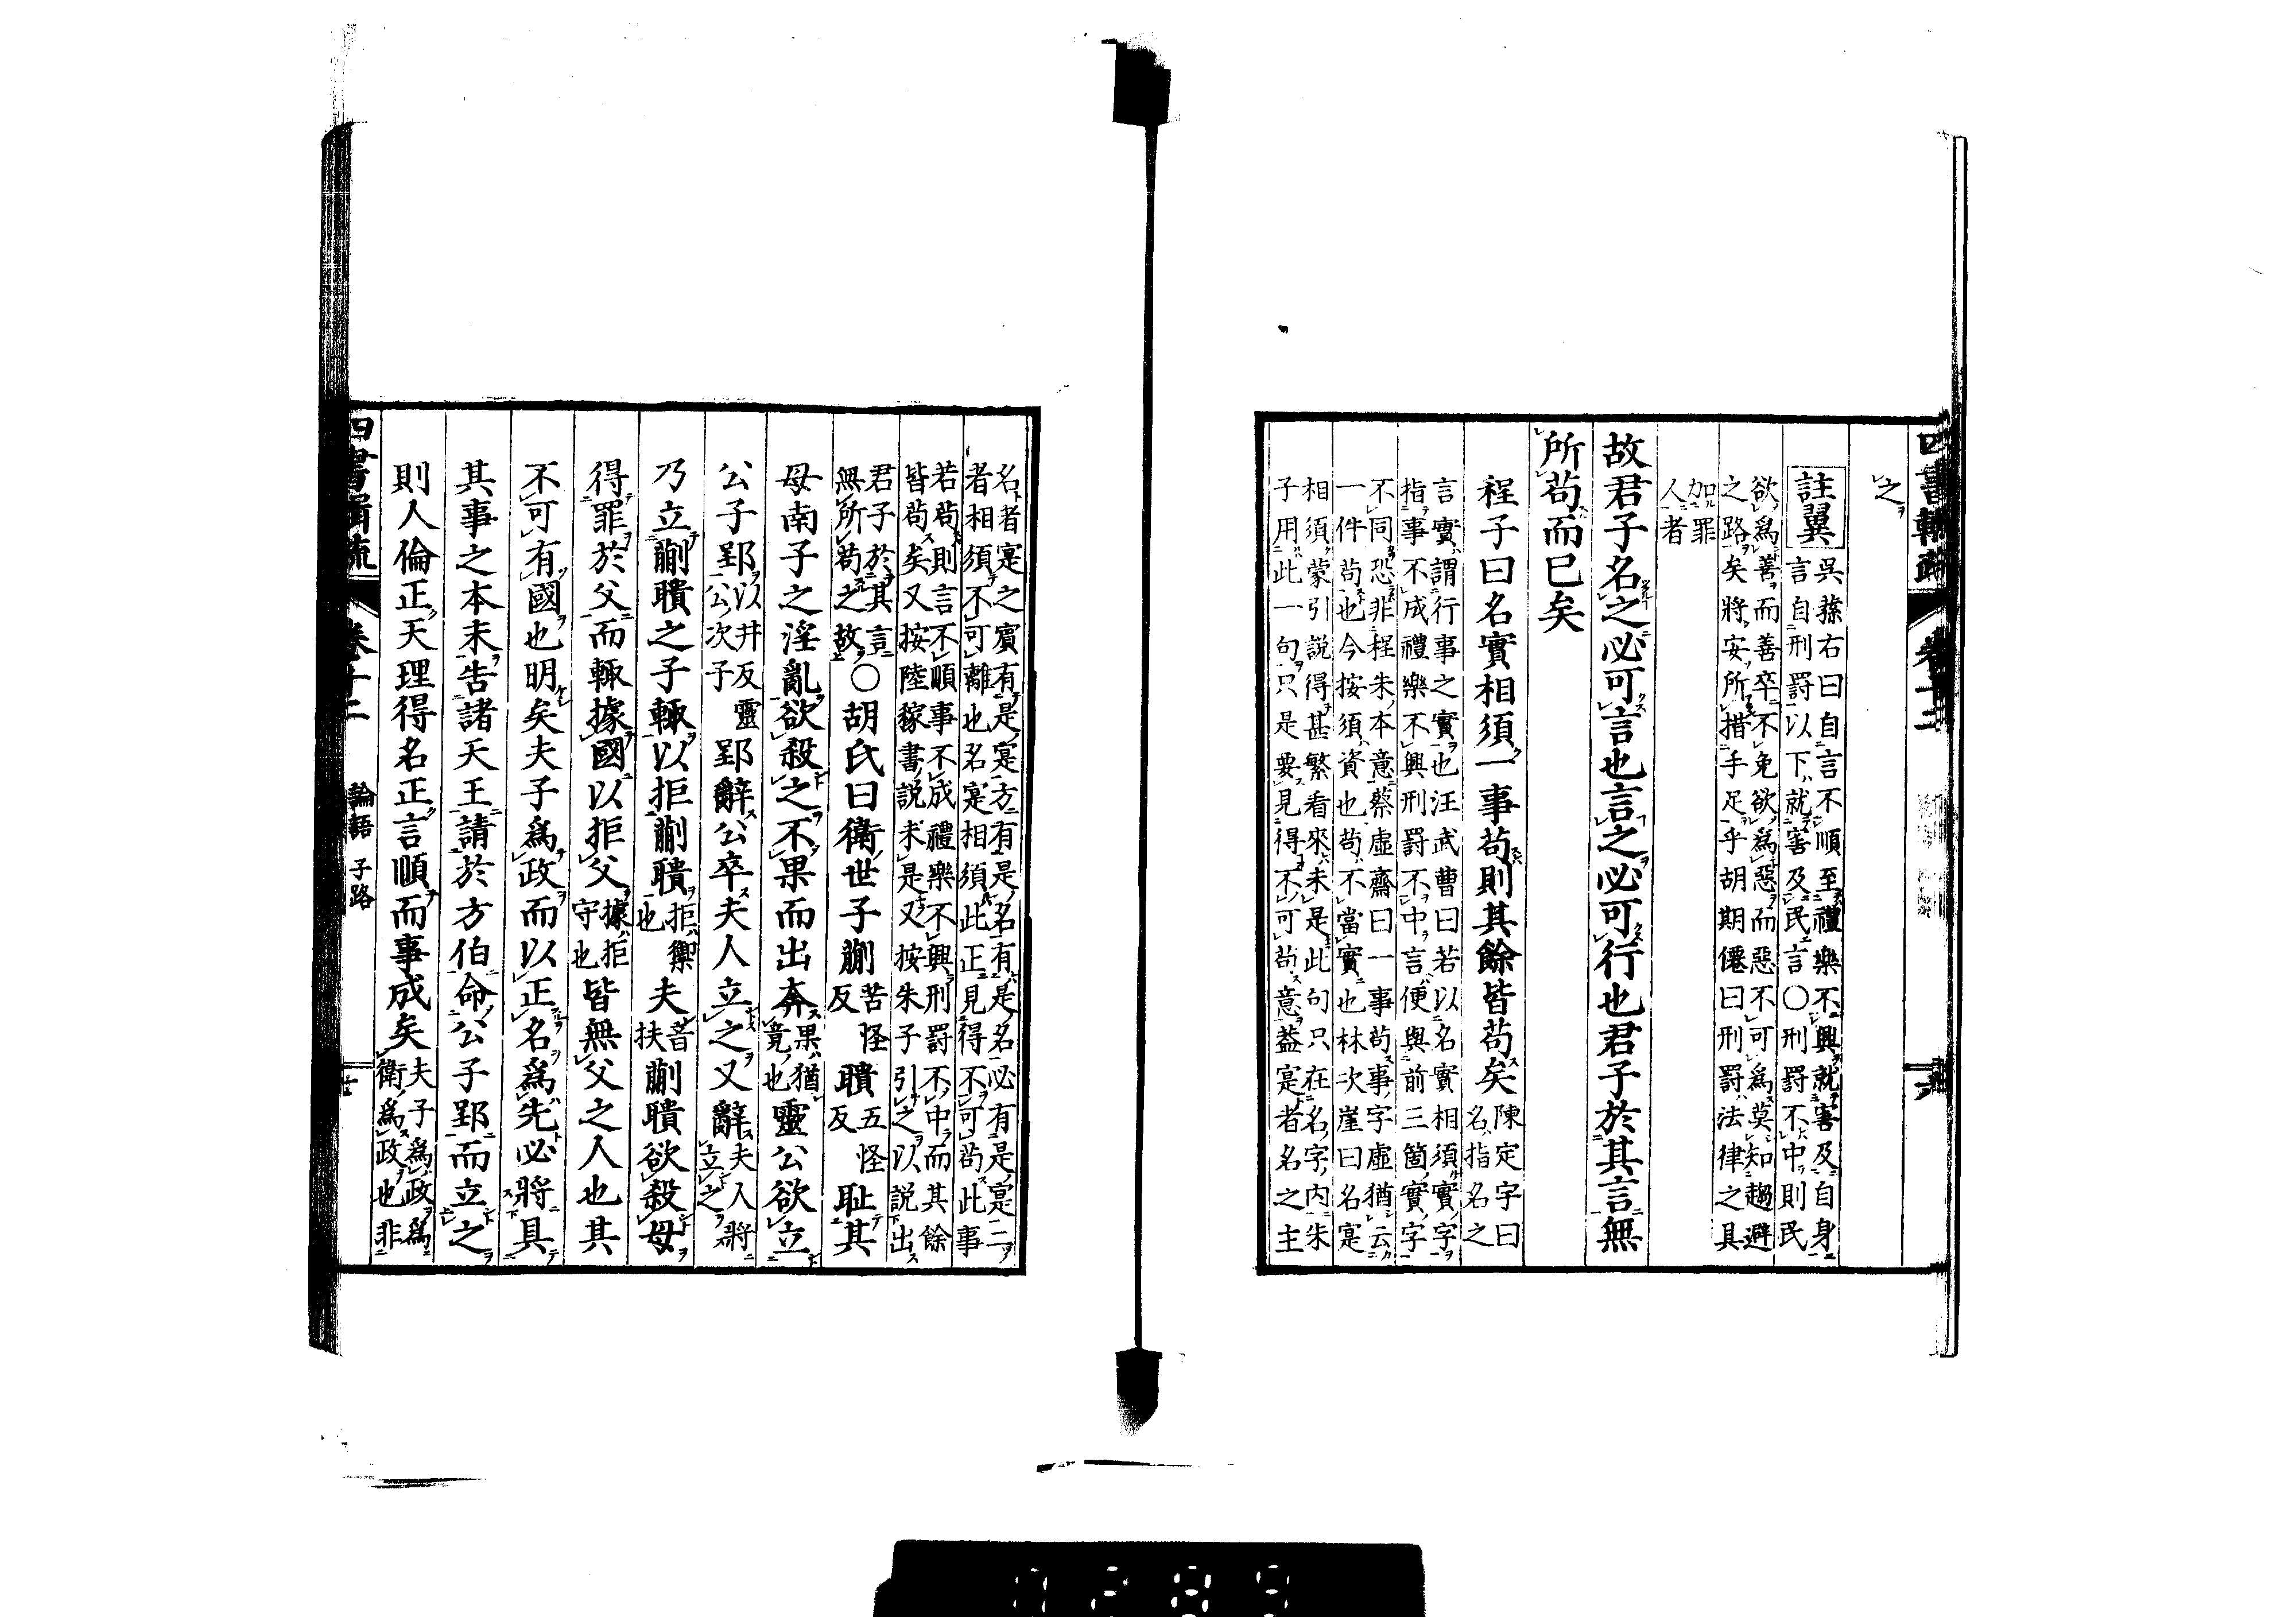 四書輯疏 卷十二
之
註翼 吳蓀右曰自言不順至禮樂不興就害及自身
言自刑罰以下就害及民言〇刑罰不中則民
欲爲善而善卒不免欲爲惡而惡不可爲莫知趨避
之路矣將安所措手足乎胡期僊曰刑罰法律之具
加罪
人者
故君子名之必可言也言之必可行也君子於其言無
所苟而已矣
程子曰名實相須一事苟則其餘皆苟矣 陳定宇曰
名指名之
言實謂行事之實也汪武曹曰若以名實相須實字
指事不成禮樂不興刑罰不中言便與前三箇實字
不同恐非程朱本意蔡虛齋曰一事苟事字虛猶云
一件苟也今按須資也苟不當實也林次崖曰名寔
相須蒙引說得甚繁看來未是此句只在名字內朱
子用此一句只是要見得不可苟意蓋寔者名之主
名者寔之賓有是寔方有是名有是名必有是寔二
者相須不可離也名寔相須此正見得不可苟此事
若苟則言不順事不成禮樂不興刑罰不中而其餘
皆苟矣又按陸稼書說未是又按朱子引之以說出
君子於其言
無所苟之故〇胡氏曰衛世子蒯 苦怪
反 聵 五怪
反 耻其
母南子之淫亂欲殺之不果而出奔 果猶
竟也 靈公欲立
公子郢 以井反靈
公次子 郢辭公卒夫人立之又辭 夫人將
立之
乃立蒯聵之子輒以拒蒯聵 拒禦
也 夫 音
扶 蒯聵欲殺母
得罪於父而輒據國以拒父 據拒
守也 皆無父之人也其
不可有國也明矣夫子爲政而以正名爲先必將具
其事之本末告諸天王請於方伯命公子郢而立之
則人倫正天理得名正言順而事成矣 夫子爲政爲
衛爲政也非
四書輯疏 卷十二 論語 子路